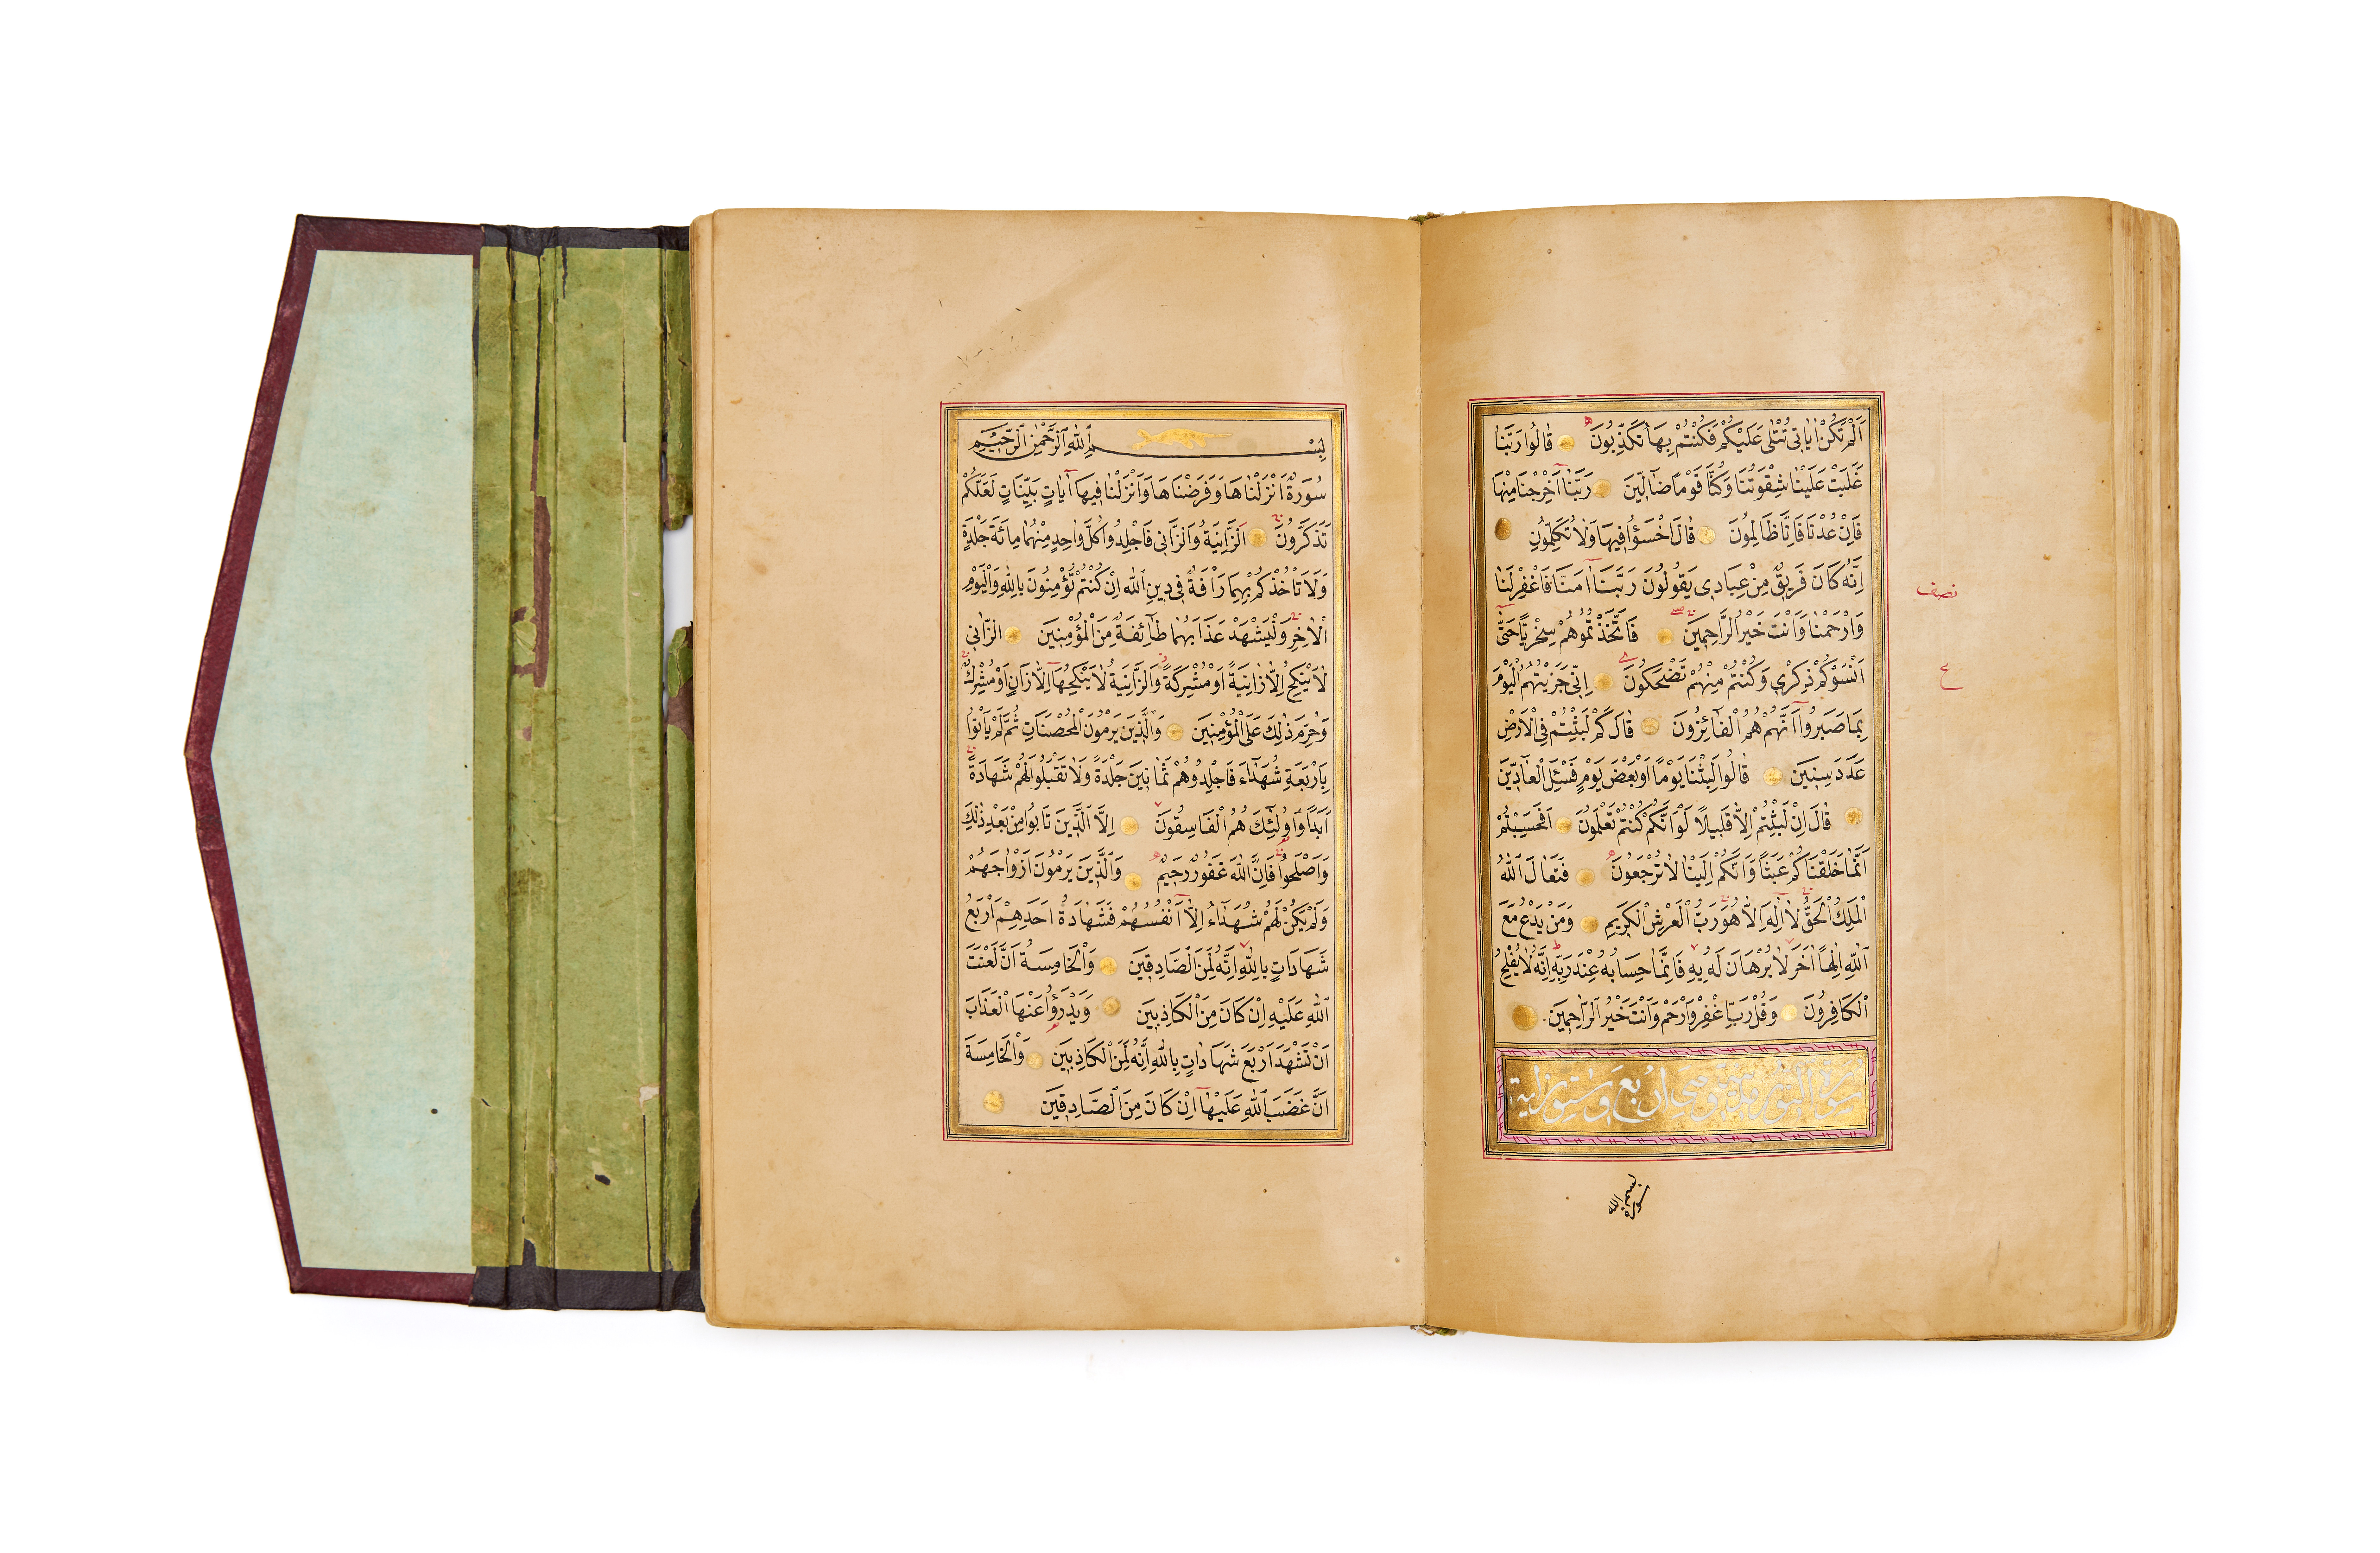 اَلَمْ تَكُنْ اٰيَاتِى تُتْلٰى عَلَيْكُمْ فَكُنْتُمْ بِهَا تُكَذِّبُونَ قَالُوا رَبَّنَا
غَلَبَتْ عَلَيْنَا شِقْوَتُنَا وَكُنَّا قَوْمًا ضَٓالّ۪ينَ رَبَّنَٓا اَخْرِجْنَا مِنْهَا
فَاِنْ عُدْنَا فَاِنَّا ظَالِمُونَ قَالَ اخْسَؤُا ف۪يهَا وَلَا تُكَلِّمُونِ
اِنَّهُ كَانَ فَر۪يقٌ مِنْ عِبَاد۪ى يَقُولُونَ رَبَّنَٓا اٰمَنَّا فَاغْفِرْ لَنَا
وَارْحَمْنَا وَاَنْتَ خَيْرُ الرَّاحِم۪ينَ فَاتَّخَذْتُمُوهُمْ سِخْرِيًّا حَتّٰٓى
اَنْسَوْكُمْ ذِكْر۪ى وَكُنْتُمْ مِنْهُمْ تَضْحَكُونَ اِنّ۪ى جَزَيْتُهُمُ الْيَوْمَ
بِمَا صَبَرُٓوا اَنَّهُمْ هُمُ الْفَٓائِزُونَ قَالَ كَمْ لَبِثْتُمْ فِى الْاَرْضِ
عَدَدَ سِن۪ينَ قَالُوا لَبِثْنَا يَوْمًا اَوْ بَعْضَ يَوْمٍ فَسْئَلِ الْعَٓادّ۪ينَ
قَالَ اِنْ لَبِثْتُمْ اِلَّا قَل۪يلًا لَوْ اَنَّكُمْ كُنْتُمْ تَعْلَمُونَ اَفَحَسِبْتُمْ
اَنَّمَا خَلَقْنَاكُمْ عَبَثًا وَاَنَّكُمْ اِلَيْنَا لَا تُرْجَعُونَ فَتَعَالَى اللّٰهُ
الْمَلِكُ الْحَقُّ لَٓا اِلٰهَ اِلَّا هُوَ رَبُّ الْعَرْشِ الْكَر۪يمِ وَمَنْ يَدْعُ مَعَ
اللّٰهِ اِلٰهًا اٰخَرَ لَا بُرْهَانَ لَهُ بِه۪ فَاِنَّمَا حِسَابُهُ عِنْدَ رَبِّه۪ اِنَّهُ لَا يُفْلِحُ
الْكَافِرُونَ وَقُلْ رَبِّ اغْفِرْ وَارْحَمْ وَاَنْتَ خَيْرُ الرَّاحِم۪ينَ
سورة النور مدنية وهى اربع وستون اية
بسم الله
سورة
نصف
ع
بِسْمِ اللّٰهِ الرَّحْمٰنِ الرَّح۪يمِ
سُورَةٌ اَنْزَلْنَاهَا وَفَرَضْنَاهَا وَاَنْزَلْنَا ف۪يهَٓا اٰيَاتٍ بَيِّنَاتٍ لَعَلَّكُمْ
تَذَكَّرُونَ اَلزَّانِيَةُ وَالزَّان۪ى فَاجْلِدُوا كُلَّ وَاحِدٍ مِنْهُمَا مِائَةَ جَلْدَةٍ
وَلَا تَأْخُذْكُمْ بِهِمَا رَأْفَةٌ ف۪ى د۪ينِ اللّٰهِ اِنْ كُنْتُمْ تُؤْمِنُونَ بِاللّٰهِ وَالْيَوْمِ
الْاٰخِرِ وَلْيَشْهَدْ عَذَابَهُمَا طَٓائِفَةٌ مِنَ الْمُؤْمِن۪ينَ اَلزَّان۪ى
لَا يَنْكِحُ اِلَّا زَانِيَةً اَوْ مُشْرِكَةً وَالزَّانِيَةُ لَا يَنْكِحُهَٓا اِلَّا زَانٍ اَوْ مُشْرِكٌ
وَحُرِّمَ ذٰلِكَ عَلَى الْمُؤْمِن۪ينَ وَالَّذ۪ينَ يَرْمُونَ الْمُحْصَنَاتِ ثُمَّ لَمْ يَأْتُوا
بِاَرْبَعَةِ شُهَدَٓاءَ فَاجْلِدُوهُمْ ثَمَان۪ينَ جَلْدَةً وَلَا تَقْبَلُوا لَهُمْ شَهَادَةً
اَبَدًا وَاُولٰٓئِكَ هُمُ الْفَاسِقُونَ اِلَّا الَّذ۪ينَ تَابُوا مِنْ بَعْدِ ذٰلِكَ
وَاَصْلَحُوا فَاِنَّ اللّٰهَ غَفُورٌ رَح۪يمٌ وَالَّذ۪ينَ يَرْمُونَ اَزْوَاجَهُمْ
وَلَمْ يَكُنْ لَهُمْ شُهَدَٓاءُ اِلَّٓا اَنْفُسُهُمْ فَشَهَادَةُ اَحَدِهِمْ اَرْبَعُ
شَهَادَاتٍ بِاللّٰهِ اِنَّهُ لَمِنَ الصَّادِق۪ينَ وَالْخَامِسَةُ اَنَّ لَعْنَتَ
اللّٰهِ عَلَيْهِ اِنْ كَانَ مِنَ الْكَاذِب۪ينَ وَيَدْرَؤُا عَنْهَا الْعَذَابَ
اَنْ تَشْهَدَ اَرْبَعَ شَهَادَاتٍ بِاللّٰهِ اِنَّهُ لَمِنَ الْكَاذِب۪ينَ وَالْخَامِسَةَ
اَنَّ غَضَبَ اللّٰهِ عَلَيْهَٓا اِنْ كَانَ مِنَ الصَّادِق۪ينَ